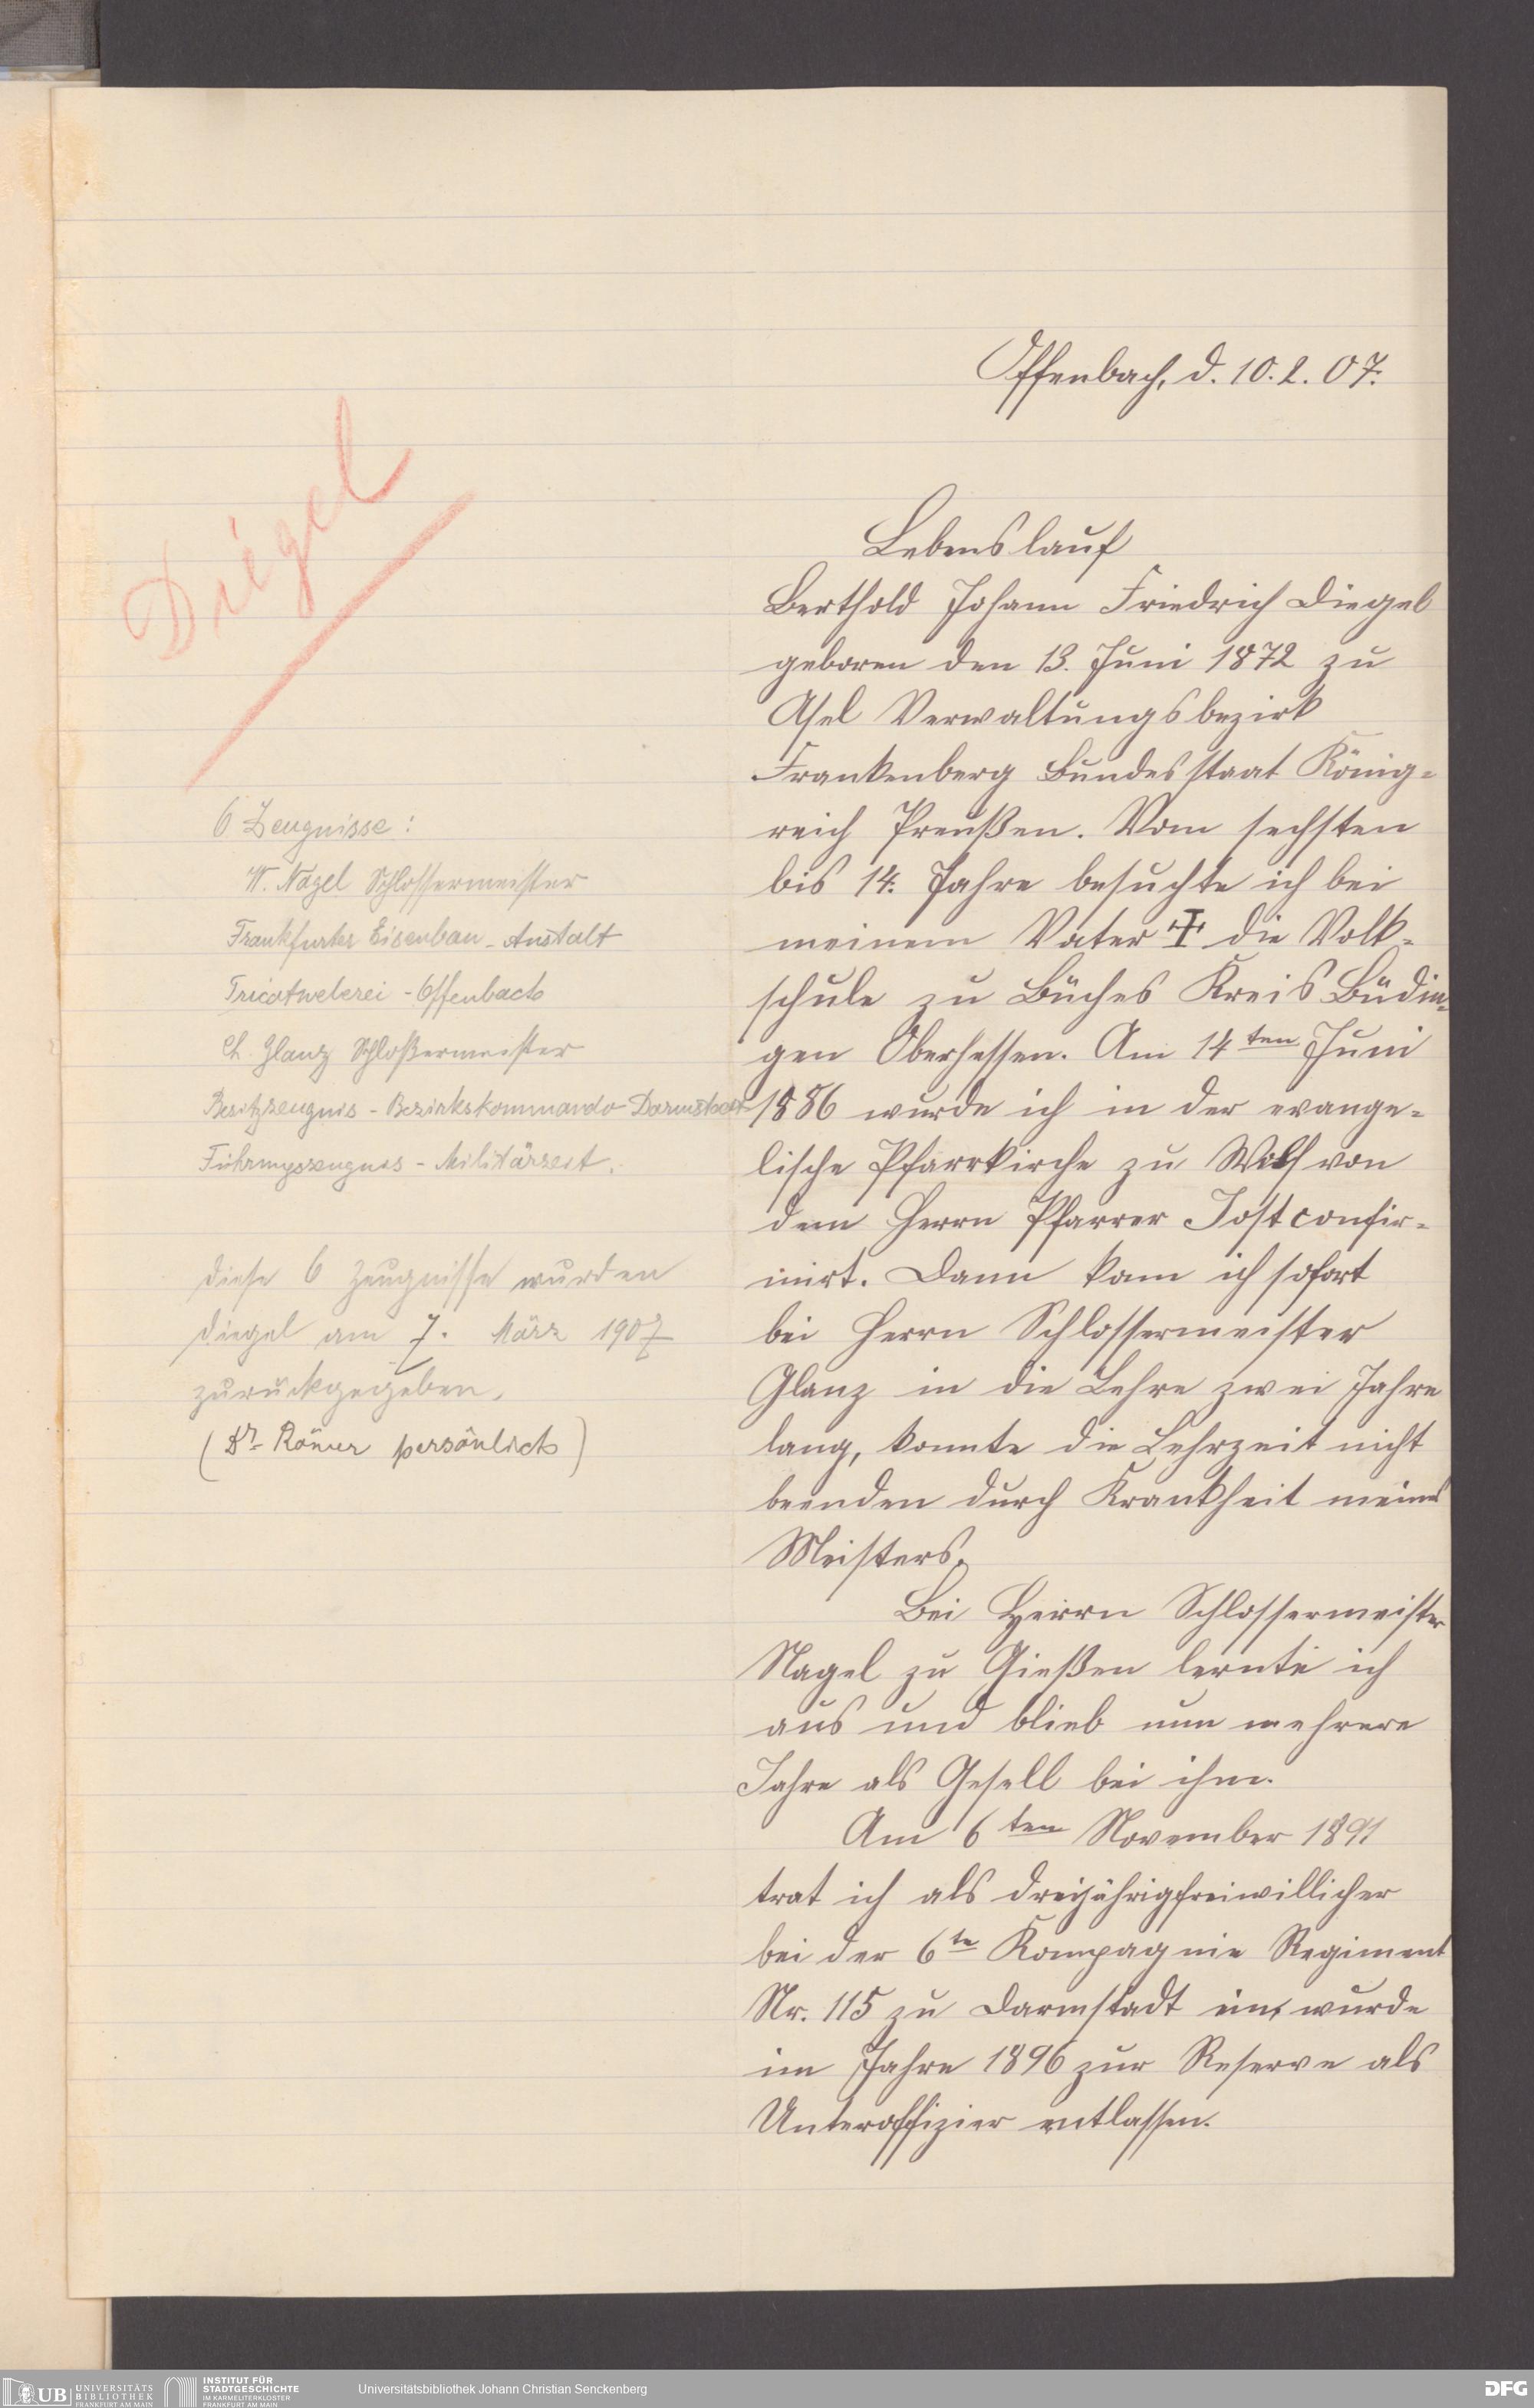 Offenbach, d. 10. 2. 07.
Lebenslauf
Berthold Johann Friedrich Diegel
geboren den 13. Juni 1872 zu
Asel Verwaltungsbezirk
Frankenberg Bundesstaat König-
reich Preußen. Vom sechsten
bis 14. Jahre besuchte ich bei
meinem Vater ✝ die Volk-
schule zu Büches Kreis Büdin-
gen Oberhessen. Am 14ten Juni
1886 wurde ich in der evange-
lische Pfarrkirche zu Wolf von
dem Herrn Pfarrer Jost confir-
mirt. Dann kam ich sofort
bei Herrn Schlossermeister
Glanz in die Lehre zwei Jahre
lang, konnte die Lehrzeit nicht
beenden durch Krankheit meines
Meisters.
Bei Herrn Schlossermeister
Nagel zu Gießen lernte ich
aus und blieb nun mehrere
Jahre als Gesell bei ihm.
Am 6ten November 1891
trat ich als dreijährigfreiwillicher
bei der 6te Kompagnie Regiment
Nr. 115 zu Darmstadt ein, wurde
im Jahre 1896 zur Reserve als
Unteroffizier entlassen.
Diegel
6 Zeugnisse:
W. Nagel Schlossermeister
Frankfurter Eisenbau-Anstalt
Tricotweberei - Offenbach
Ch. Glanz Schloßermeister
Besitzzeugnis - Bezirkskommando Darmstadt
Führungszeugnis - Militärzeit.
diese 6 Zeugnisse wurden
Diegel am 7. März 1907
zurückgegeben.
(Dr. Römer persönlich)
UB UNIVERSITÄTS
BIBLIOTHEK
FRANKFURT AM MAIN
INSTITUT FÜR
STADTGESCHICHTE
IM KARMELITERKLOSTER
FRANKFURT AM MAIN
Universitätsbibliothek Johann Christian Senckenberg
DFG